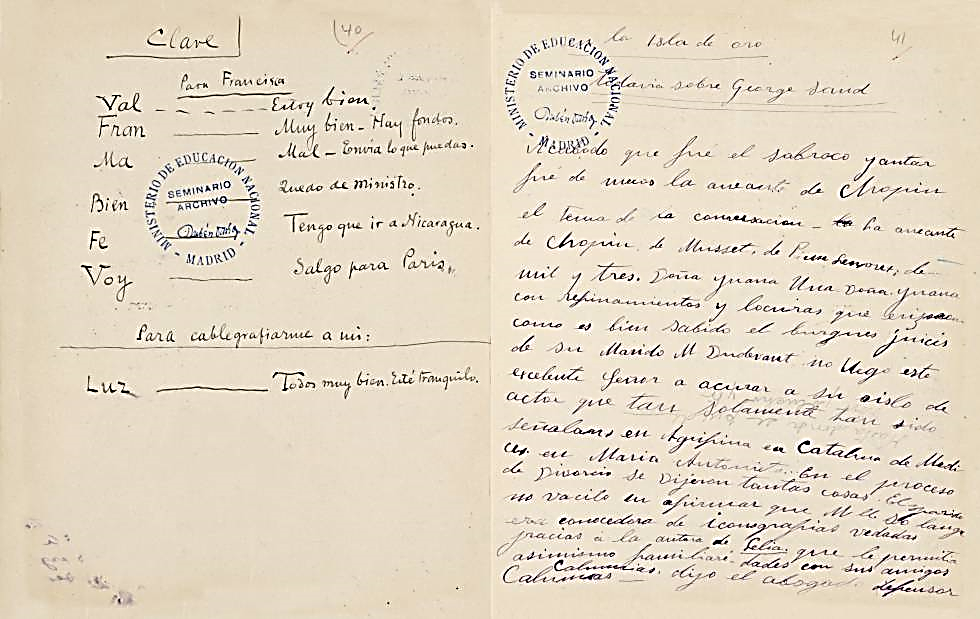 Clave
40
Para Francisca
Val - - - - Estoy bien.
Fran — Muy bien - Hay fondos.
Ma — Mal - Envia lo que puedas.
Bien Quedo de Ministro.
Fe Tengo que ir a Nicaragua.
Voy — Salgo para Paris.
MINISTERIO DE EDUCACIÓN NACIONAL
SEMINARIO
ARCHIVO
Rubén Darío
- MADRID -
Para cablegrafiarme a mi:
Luz — Todos muy bien. Esté tranquilo.
41
la Isla de oro
todavia sobre George Sand
MINISTERIO DE EDUCACIÓN NACIONAL
SEMINARIO
ARCHIVO
Rubén Darío
- MADRID -
que fué el sabroso yantar
fué de nuevo la amante de Chopin
el tema de la conversacion - La amante
de Chopin, de Musset, de de
mil y tres. Doña Juana Una Doña Juana
con refinamientos y locuras que
como es bien sabido el burgues juicio
de su Marido M Dudevant no llegó este
excelente señor a acusar a su de
actos que tan solamente han sido
señalados en Agripina en Catalina de Medi
cis en Maria Antonieta. En el proceso
de Divorcio se dijeron tantas cosas. El
no vaciló en afirmar que
era conocedora de iconografias vedadas
gracias a la autora de Lelia que le permitia
asimismo familiaridades con sus amigos
Calumnias.
Calumnias — dijo el abogado defensor